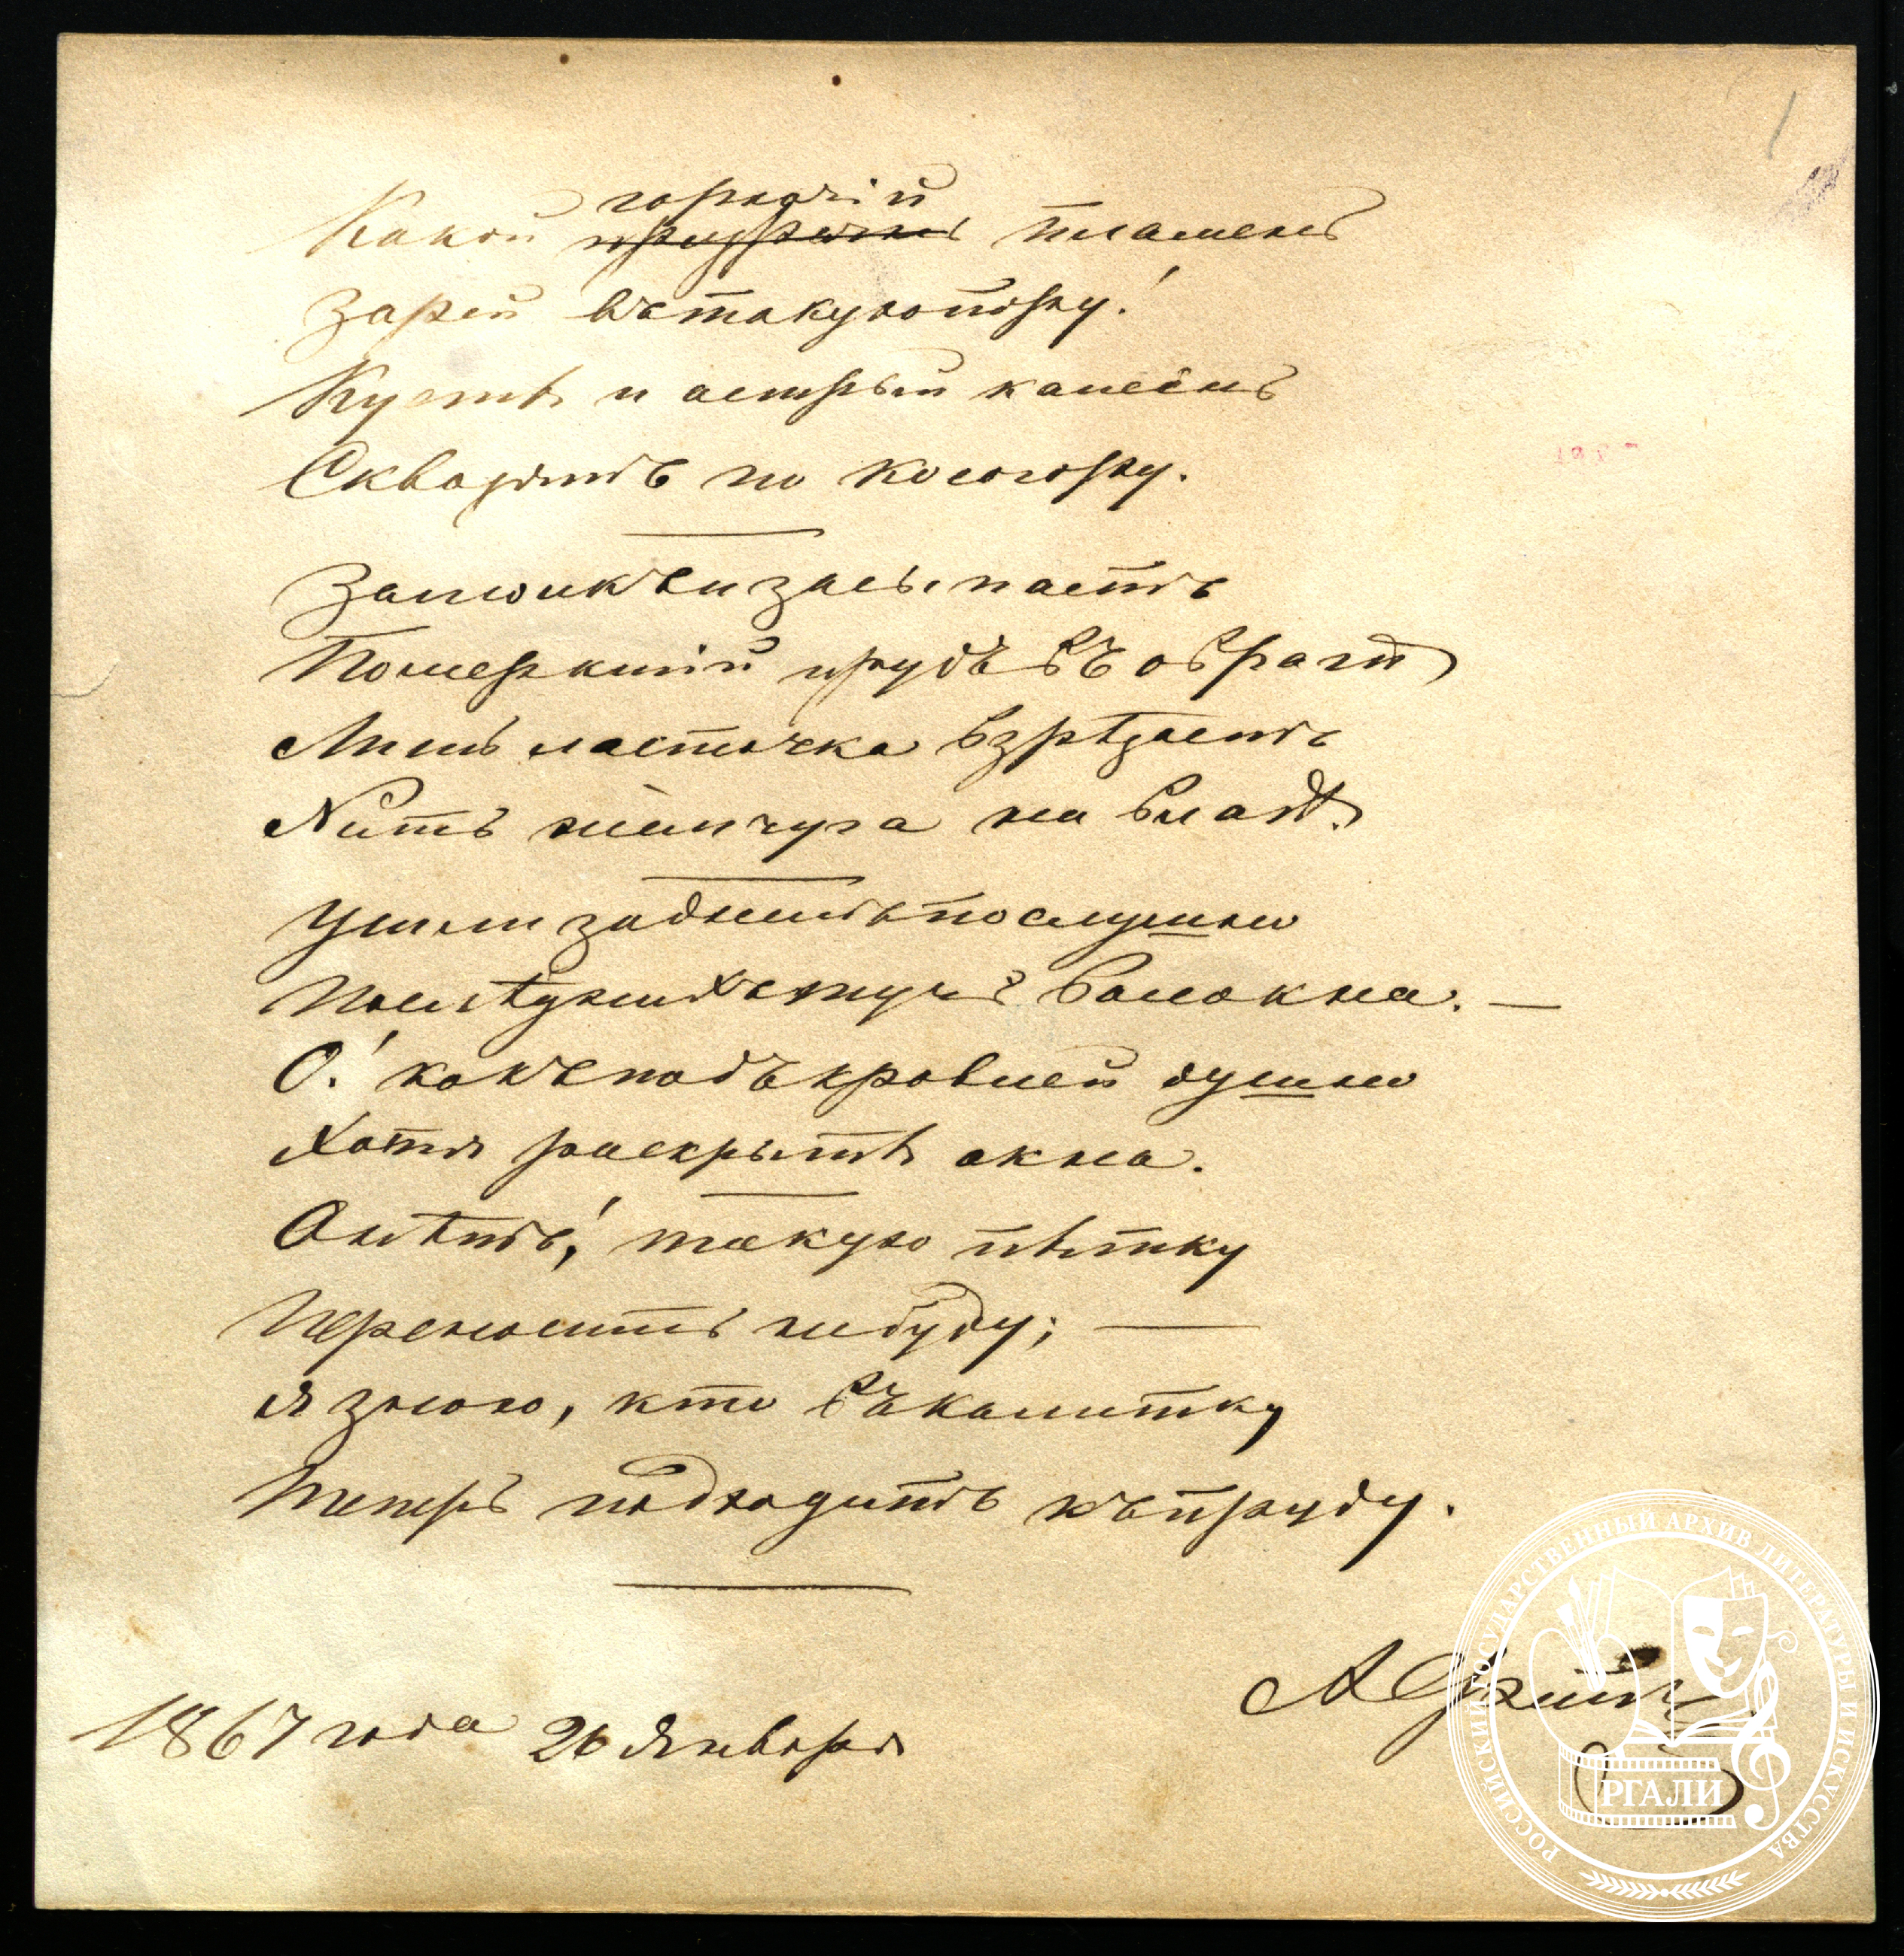 горячій
Какой пламень
Зарей въ такую пору!
Кусты и острый камень
Сквозятъ по косогору.
Замолкъ и засыпаетъ
Померкшій прудъ въ овраги
Лишь ласточка взрѣзаетъ
Нить жемчуга на влагѣ.
Ушли за днемъ послушно
Послѣднихъ тучъ волокна. —
О! какъ подъ кровлей душно
Хотя раскрыты окна.
О нѣтъ! такую пытку
Переносить не буду; —
Я знаю, кто въ калитку
Теперь подходитъ къ пруду.
А Фетъ
1867 года 26 Января
1
РОССИЙСКИЙ ГОСУДАРСТВЕННЫЙ АРХИВ ЛИТЕРАТУРЫ И ИСКУССТВА
РГАЛИ